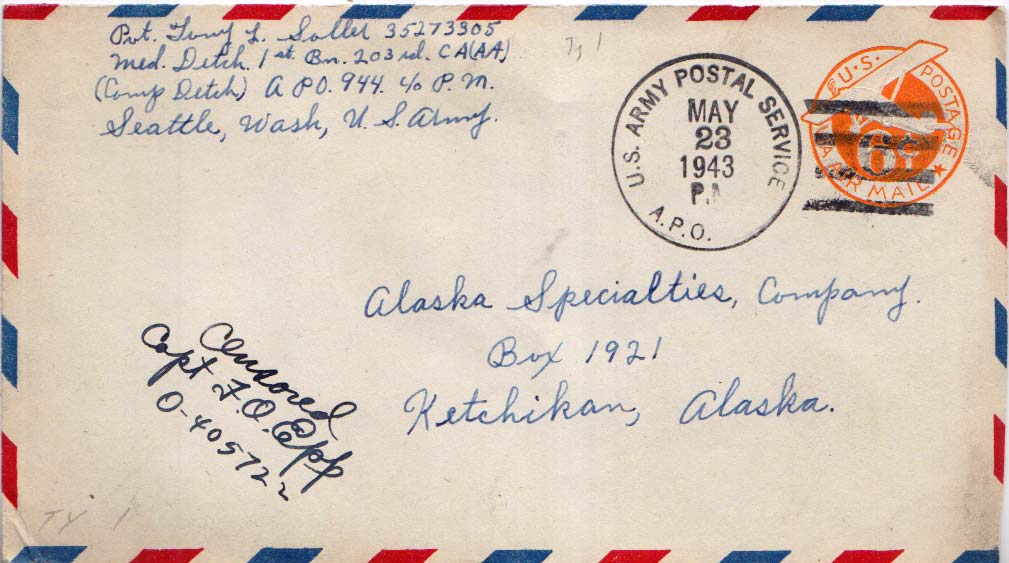 Pvt. Tony L. Soller 35273305
Med. Detch. 1st. Bn. 203rd. CA(AA)
(Comp Detch) A P.O. 944. c/o P. M.
Seattle, Wash, U. S. Army.
Ty 1
U.S. ARMY POSTAL SERVICE
MAY
23
1943
P.M
A.P.O.
U.S. POSTAGE
6¢
VIA AIR MAIL
Alaska Specialties, Company.
Box 1921
Ketchikan, Alaska.
Censored
Capt F.O. Epp
O-405722
TY 1